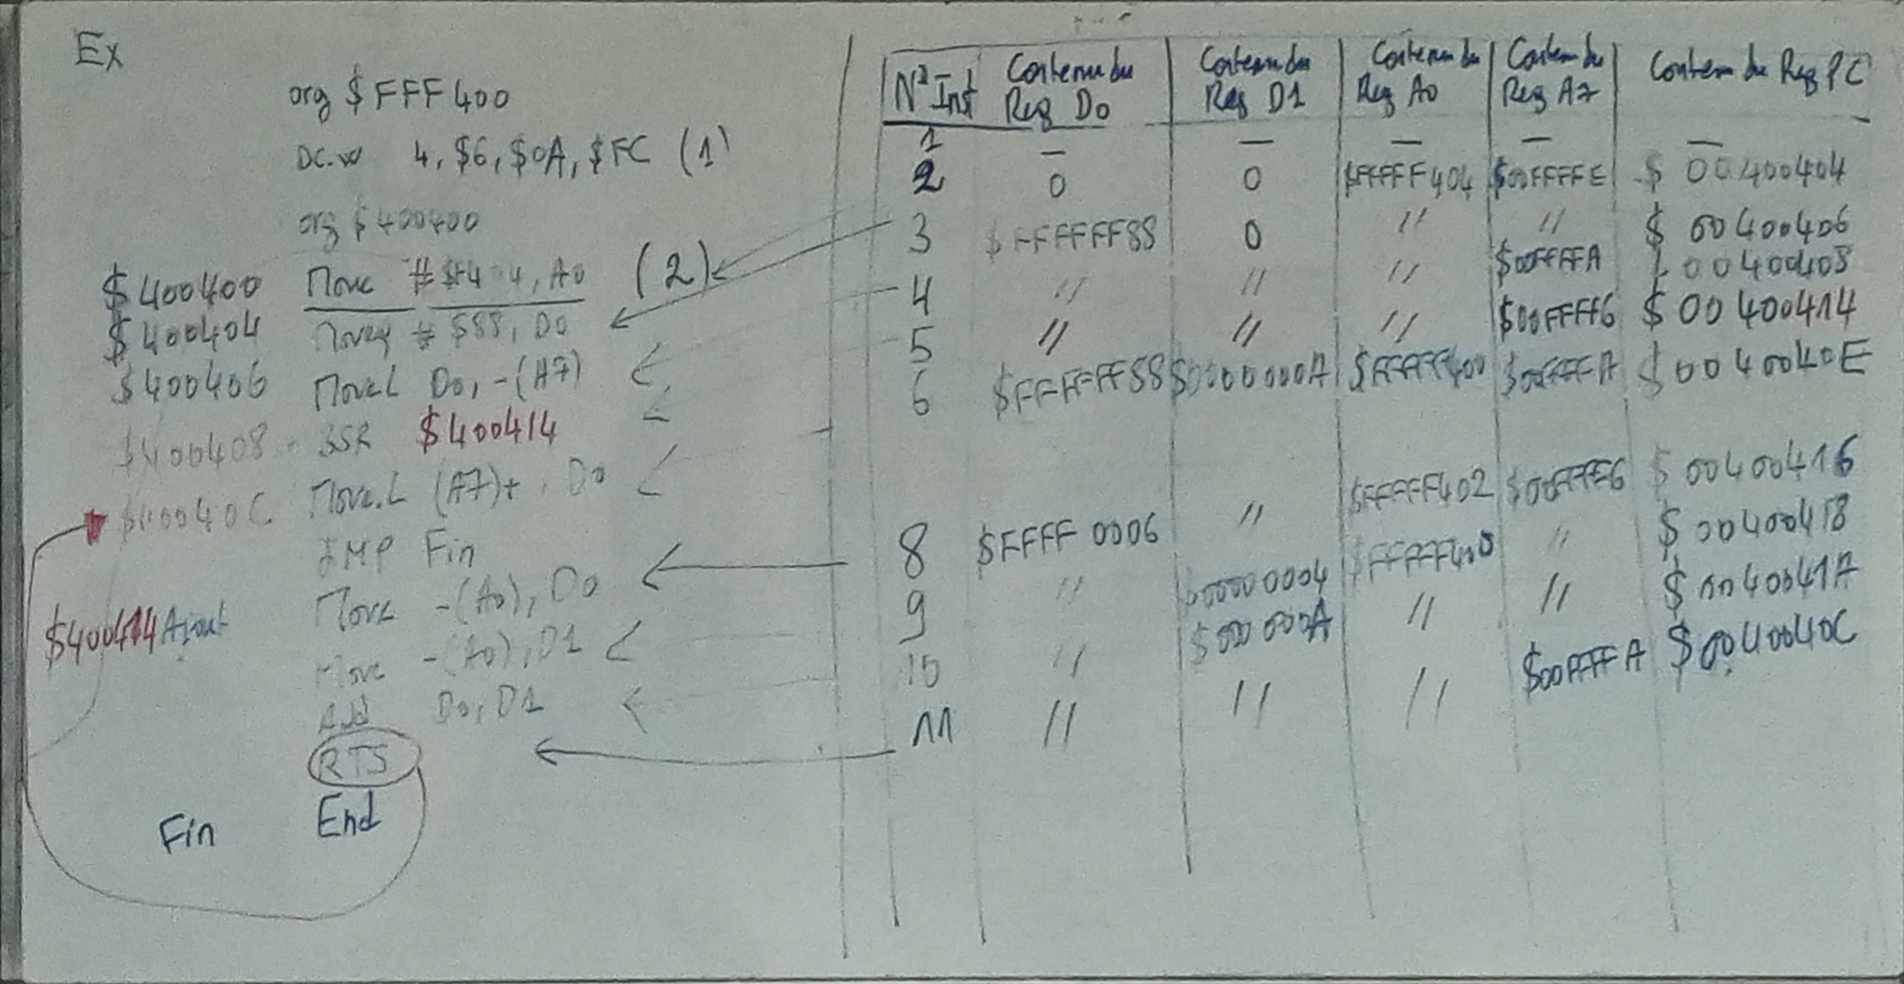 Ex
org $FFF400
DC.W 4, $6, $0A, $FC (1)
org $400400
$400400 Move # $F404, A0 (2)
$400404 Moveq # $88, D0
$400406 Move.L D0, -(A7)
$400408 BSR $400414
$40040C Move.L (A7)+, D0
JMP Fin
$400414 Ajout Move -(A0), D0
Move -(A0), D1
Add D0, D1
RTS
Fin End
N° Inst Contenu du Reg D0 Contenu du Reg D1 Contenu du Reg A0 Contenu du Reg A7 Contenu du Reg PC
1 — — — — —
2 0 0 $FFFFF404 $00FFFFE $ 00400404
3 $FFFFFF88 0 // // $ 00400406
4 // // // $00FFFFA 00400408
5 // // // $00FFFF6 $ 00400414
6 $FFFFFF88 $0000000A $FFFFF400 $00FFFFA $0040040E
8 $FFFF0006 // $FFFFF402 $00FFFF6 $ 00400416
9 // $00000004 $FFFFF400 // $ 00400418
10 // $000000A // // $ 0040041A
11 // // // $00FFFFA $0040040C